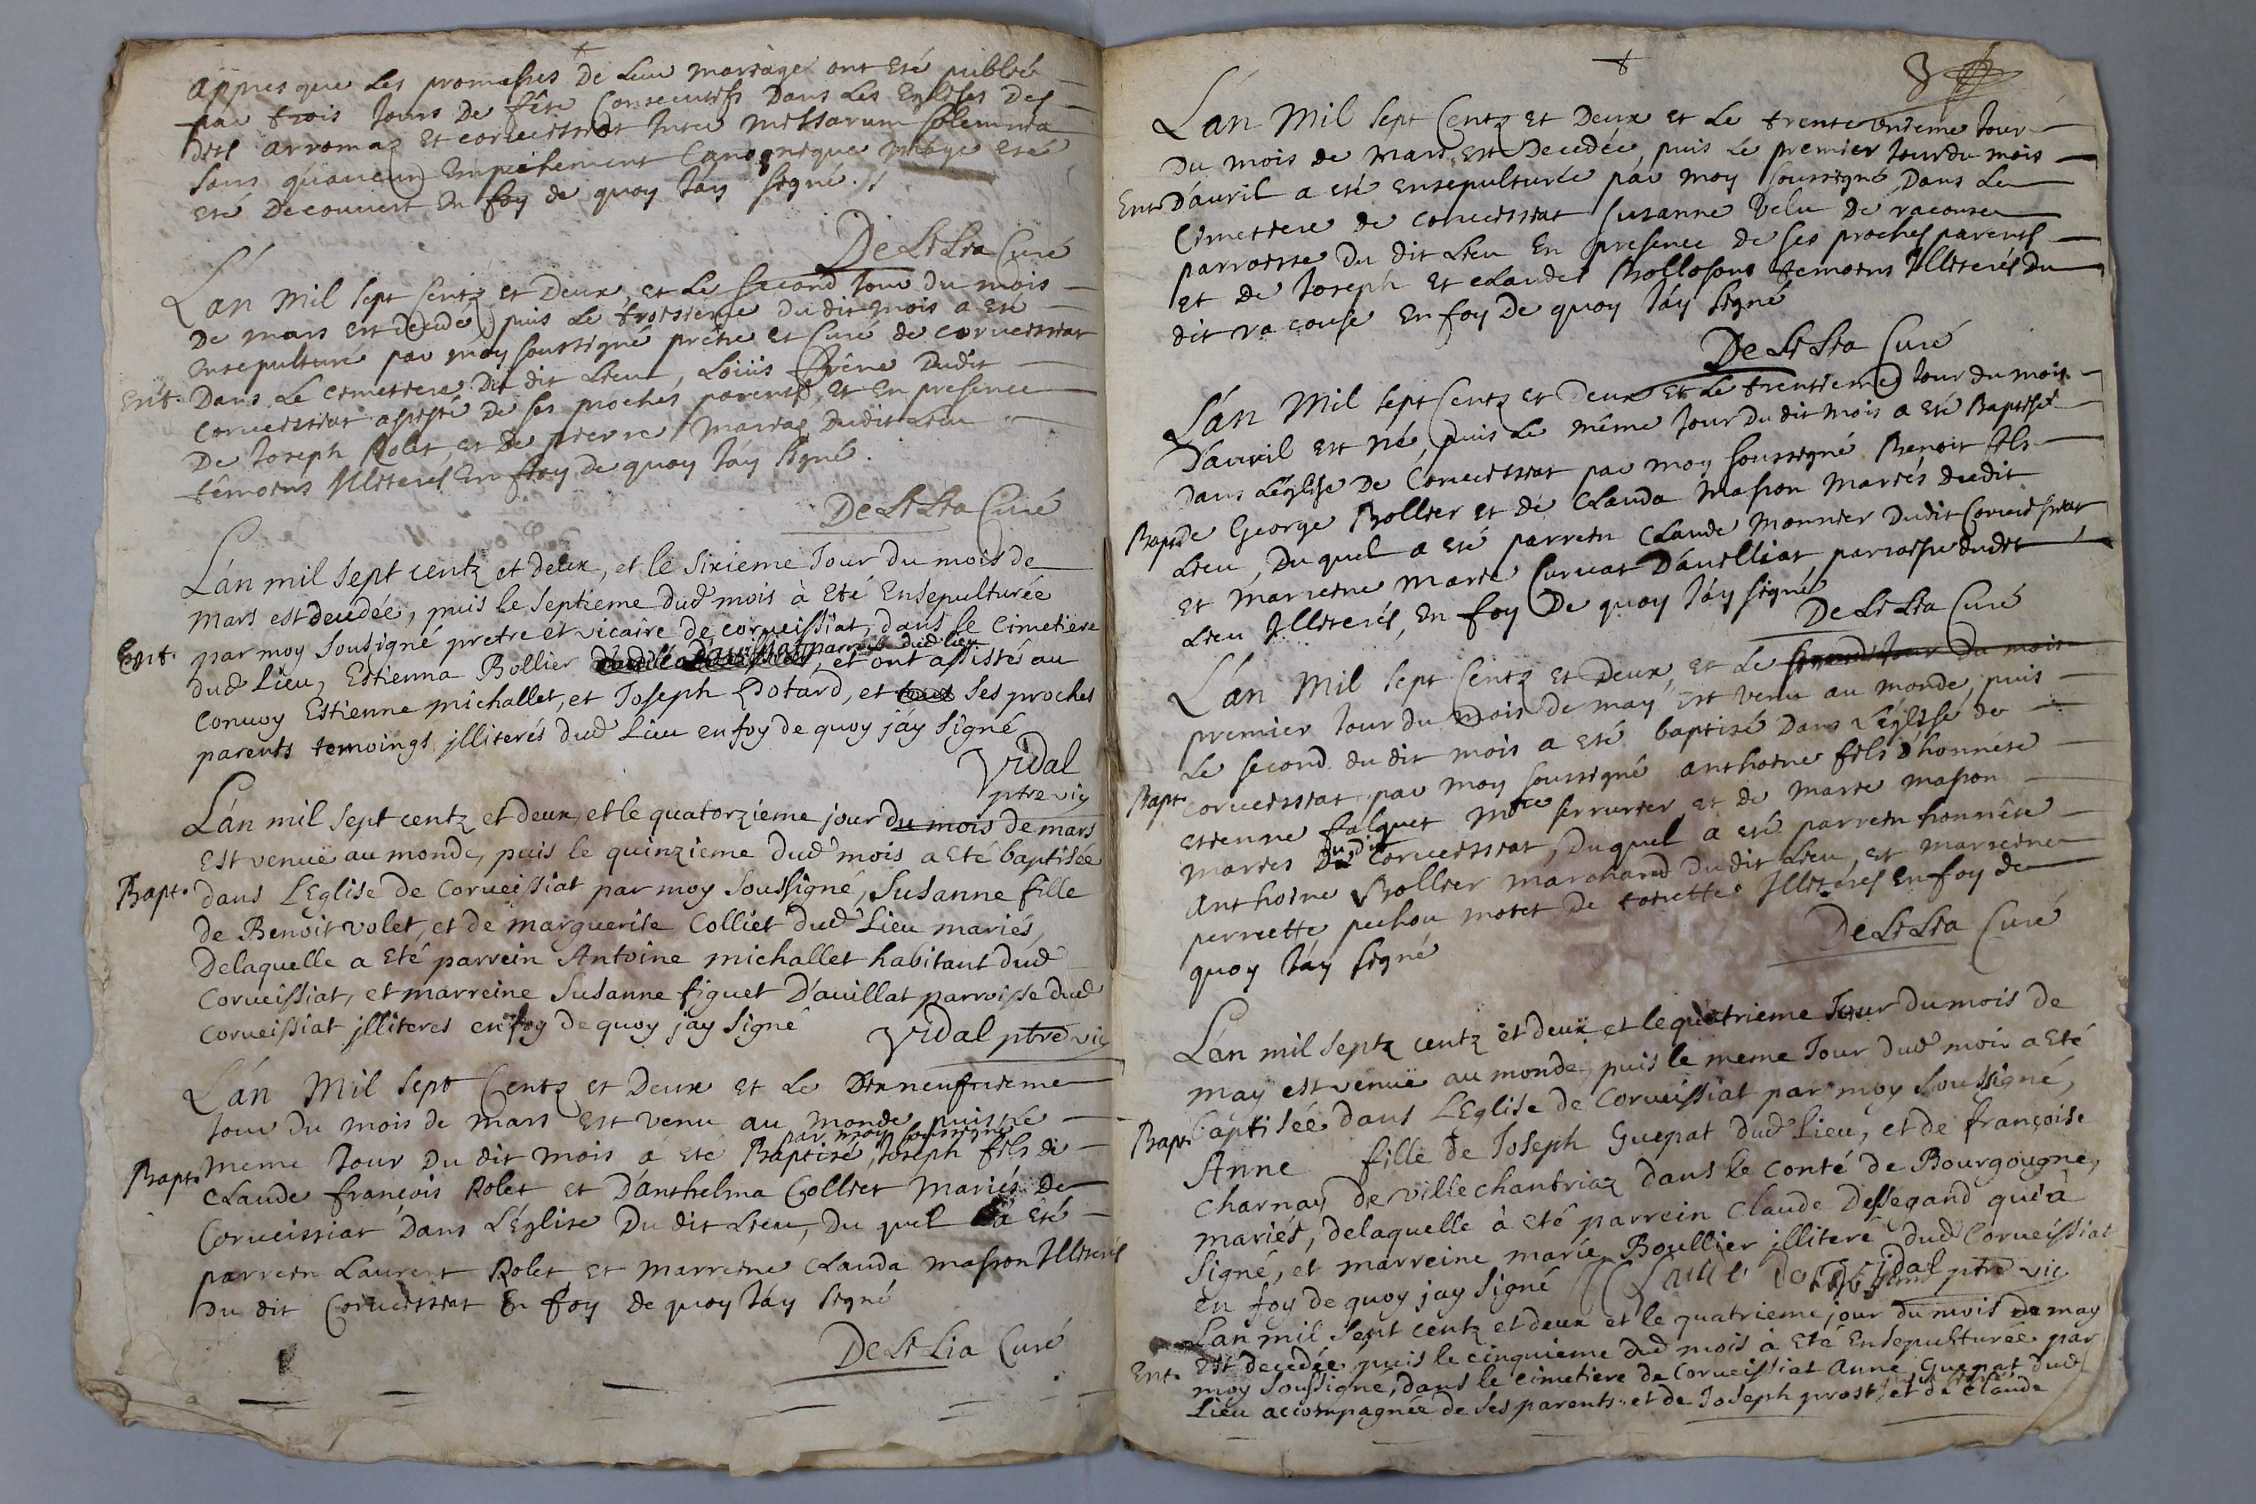 appres que les promesses de leur mariage ont eté publiés
par trois jours de fête consecutifs dans les Eglises des
dits arromaz et corveissiat inter missarum solemnia
sans qu'aucun empechement canonique m'aye eté
eté decouvert en foy de quoy j'ay signé
De Lilia Curé
L'an mil sept centz et deux, et le second jour du mois
de mars est decedé, puis le troisieme dudit mois a eté
ensepulturé par moy soussigné prêtre et curé de corveissiat
Ent. dans le cimetiere du dit lieu, Loüis frêne dudit
corveissiat assisté de ses proches parents et en presence
de joseph Rolet, et de pierre mariaz dudit lieu
têmoins illiterés en foy de quoy j'ay signé.
De Lilia Curé
L'an mil sept centz et deux, et le sixieme Jour du mois de
mars est decedée, puis le septieme dud mois à eté Ensepulturée
par moy sousigné pretre et vicaire de corveissiat, dans le cimetiere
Ent. dud lieu, Estienna Bollier d'avillat parroisse dud lieu, et ont assisté au
convoy Estienne michallet, et Joseph Potard, et ses proches
parents temoings illiterés dud lieu en foy de quoy jay signé
Vidal
ptre vic
L'an mil sept centz et deux, et le quatorzieme jour du mois de mars
est venuë au monde, puis le quinzieme dud mois a eté baptisée
Bapt. dans l'Eglise de corveissiat par moy soussigné, Susanne fille
de Benoit volet, et de marguerite Colliet dud lieu mariés,
delaquelle a eté parrein Antoine michallet habitant dud
corveissiat, et marreine Susanne figuet D'avillat parroisse dud
corveissiat illiteres en foy de quoy jay signé
Vidal ptre vic
L'an Mil sept Centz et Deux et le Dixneufvieme
jour du mois de mars est venu au monde puis le
Bapt. meme jour du dit mois a eté Baptisé par moy soussigné, joseph fils de
Claude françois Rolet et d'anthelma Colliet mariés de
Corveissiat dans l'Église du dit lieu, du quel a eté
parrein Laurent Rolet et marreine Clauda masson Illiterés
du dit Corveissiat En foy de quoy j'ay signé
De Lilia Curé
3
L'an Mil sept Centz et Deux et le trente unieme jour
du mois de mars est decedée, puis le premier jour du mois
Ent. D'avril a eté ensepulturée par moy soussigné dans le
Cimetiere de corveissiat Susanne Velu de racouse
parroisse du dit lieu en presence de ses proches parents
et de joseph et claudes Bollosons temoins Illiterés du
dit racouse en foy de quoy j'ay signé
De Lilia Curé
L'an Mil sept Centz et Deux et le trentieme jour du mois
d'avril est né, puis le même jour du dit mois a eté Baptisé
dans l'église de Corveissiat par moy soussigné Benoit fils
Bapt. de George Bollier et de Clauda masson mariés dudit
lieu, du quel a eté parrein Claude monnier dudit Corveissiat
et marreine marie Curvat D'avilliat, parroisse dudit
lieu Illiterés, en foy de quoy j'ay signé
De Lilia Curé
L'an Mil sept Centz et Deux, et le second jour du mois
premier jour du mois de may est venu au monde, puis
le second du dit mois a eté baptisé dans l'église de
Bapt. corveissiat par moy soussigné anthoine fils d'honnéte
etienne falquet mtre serrurier et de marie masson
maries dudit Corveissiat, duquel a eté parrein honnête
anthoine Bollier marchand du dit lieu, et marreine
perrette pechou motet de toirette Illiterés en foy de
quoy j'ay signé
De Lilia Curé
L'an mil septz centz et deux et le quatrieme Jour du mois de
may est venuë au monde, puis le meme Jour dud mois a eté
Bapt. baptisée dans l'Eglise de Corveissiat par moy soussigné,
Anne fille de Joseph Guepat dud lieu, et de françoise
charnay de villechantriaz dans le conté de Bourgougne,
mariés, delaquelle à eté parrein claude dessegand qui à
signé, et marreine marie Boullier illiteré dud Corveissiat
en foy de quoy jay signé Vidal ptre vic
L'an mil sept centz et deux et le quatrieme jour du mois de may
Ent. Est decedée puis le cinquieme dud mois à eté Ensepulturée par
moy soussigné, dans le cimetiere de Corveissiat anne Guepat dud
lieu accompagnée de ses parents et de Joseph prost, et de claude